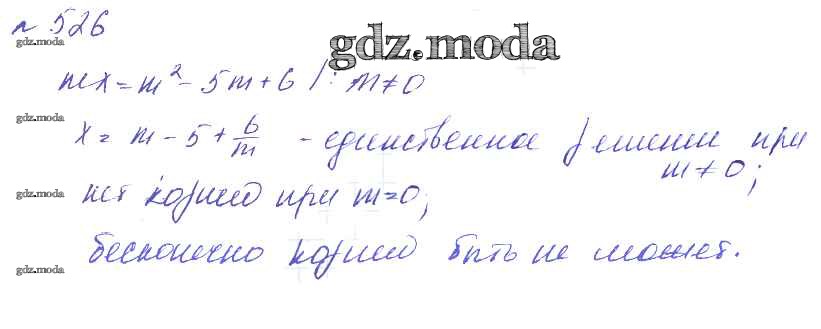 № 526
gdz.moda
gdz.moda
mx = m² - 5m + 6 | : m ≠ 0
gdz.moda
x = m - 5 + 6/m - единственное решение при
m ≠ 0;
gdz.moda
нет корней при m = 0;
бесконечно корней быть не может.
gdz.moda